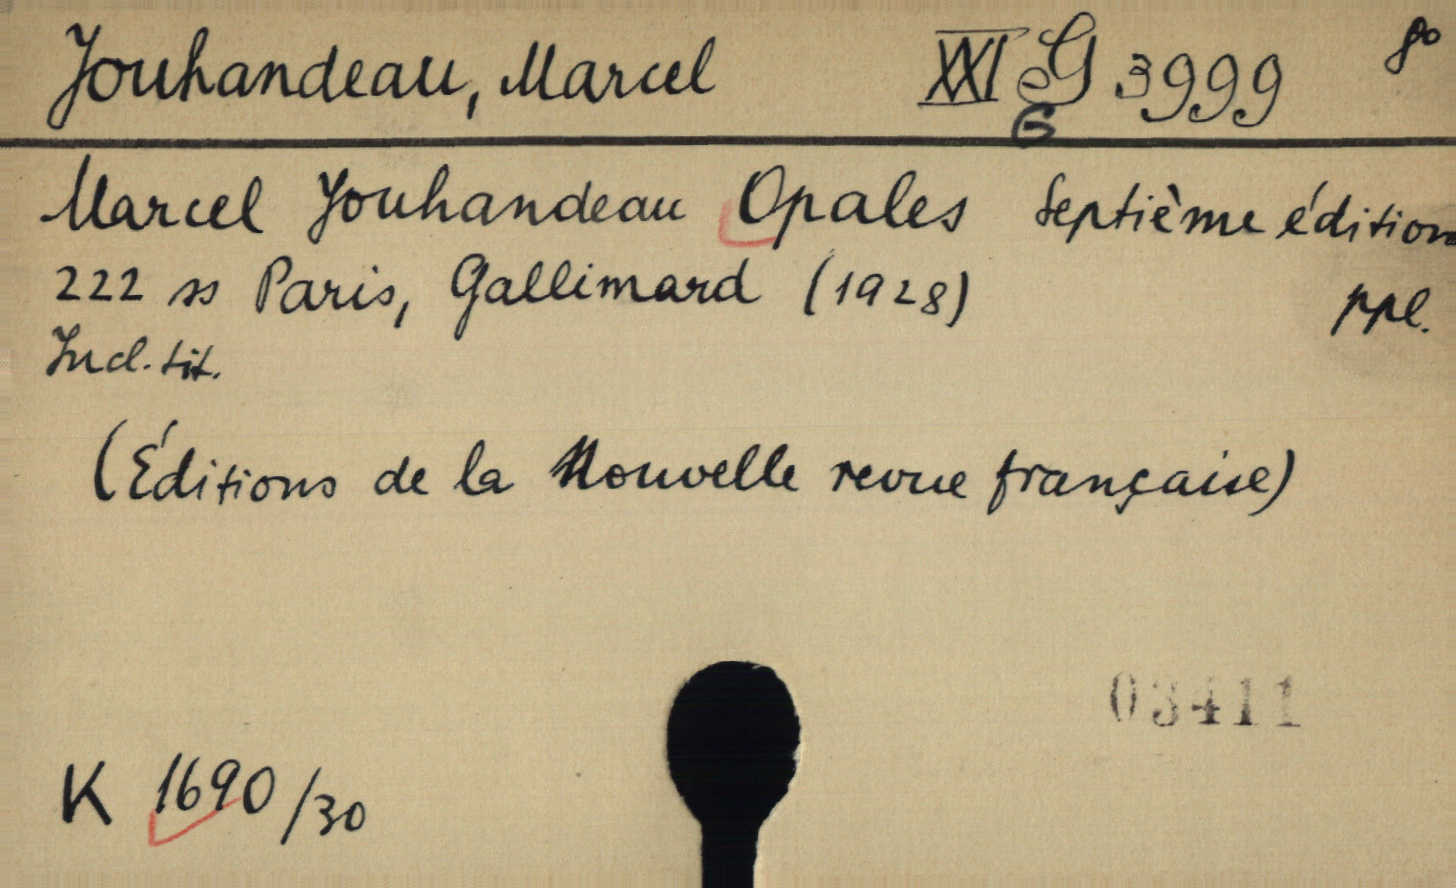 Jouhandeau, Marcel XXI G 3999 8°
G
Marcel Jouhandeau Opales Septième édition
222 ss Paris, Gallimard (1928) ppl.
Incl. tit.
(Éditions de la Nouvelle revue française)
03411
K 1690/30